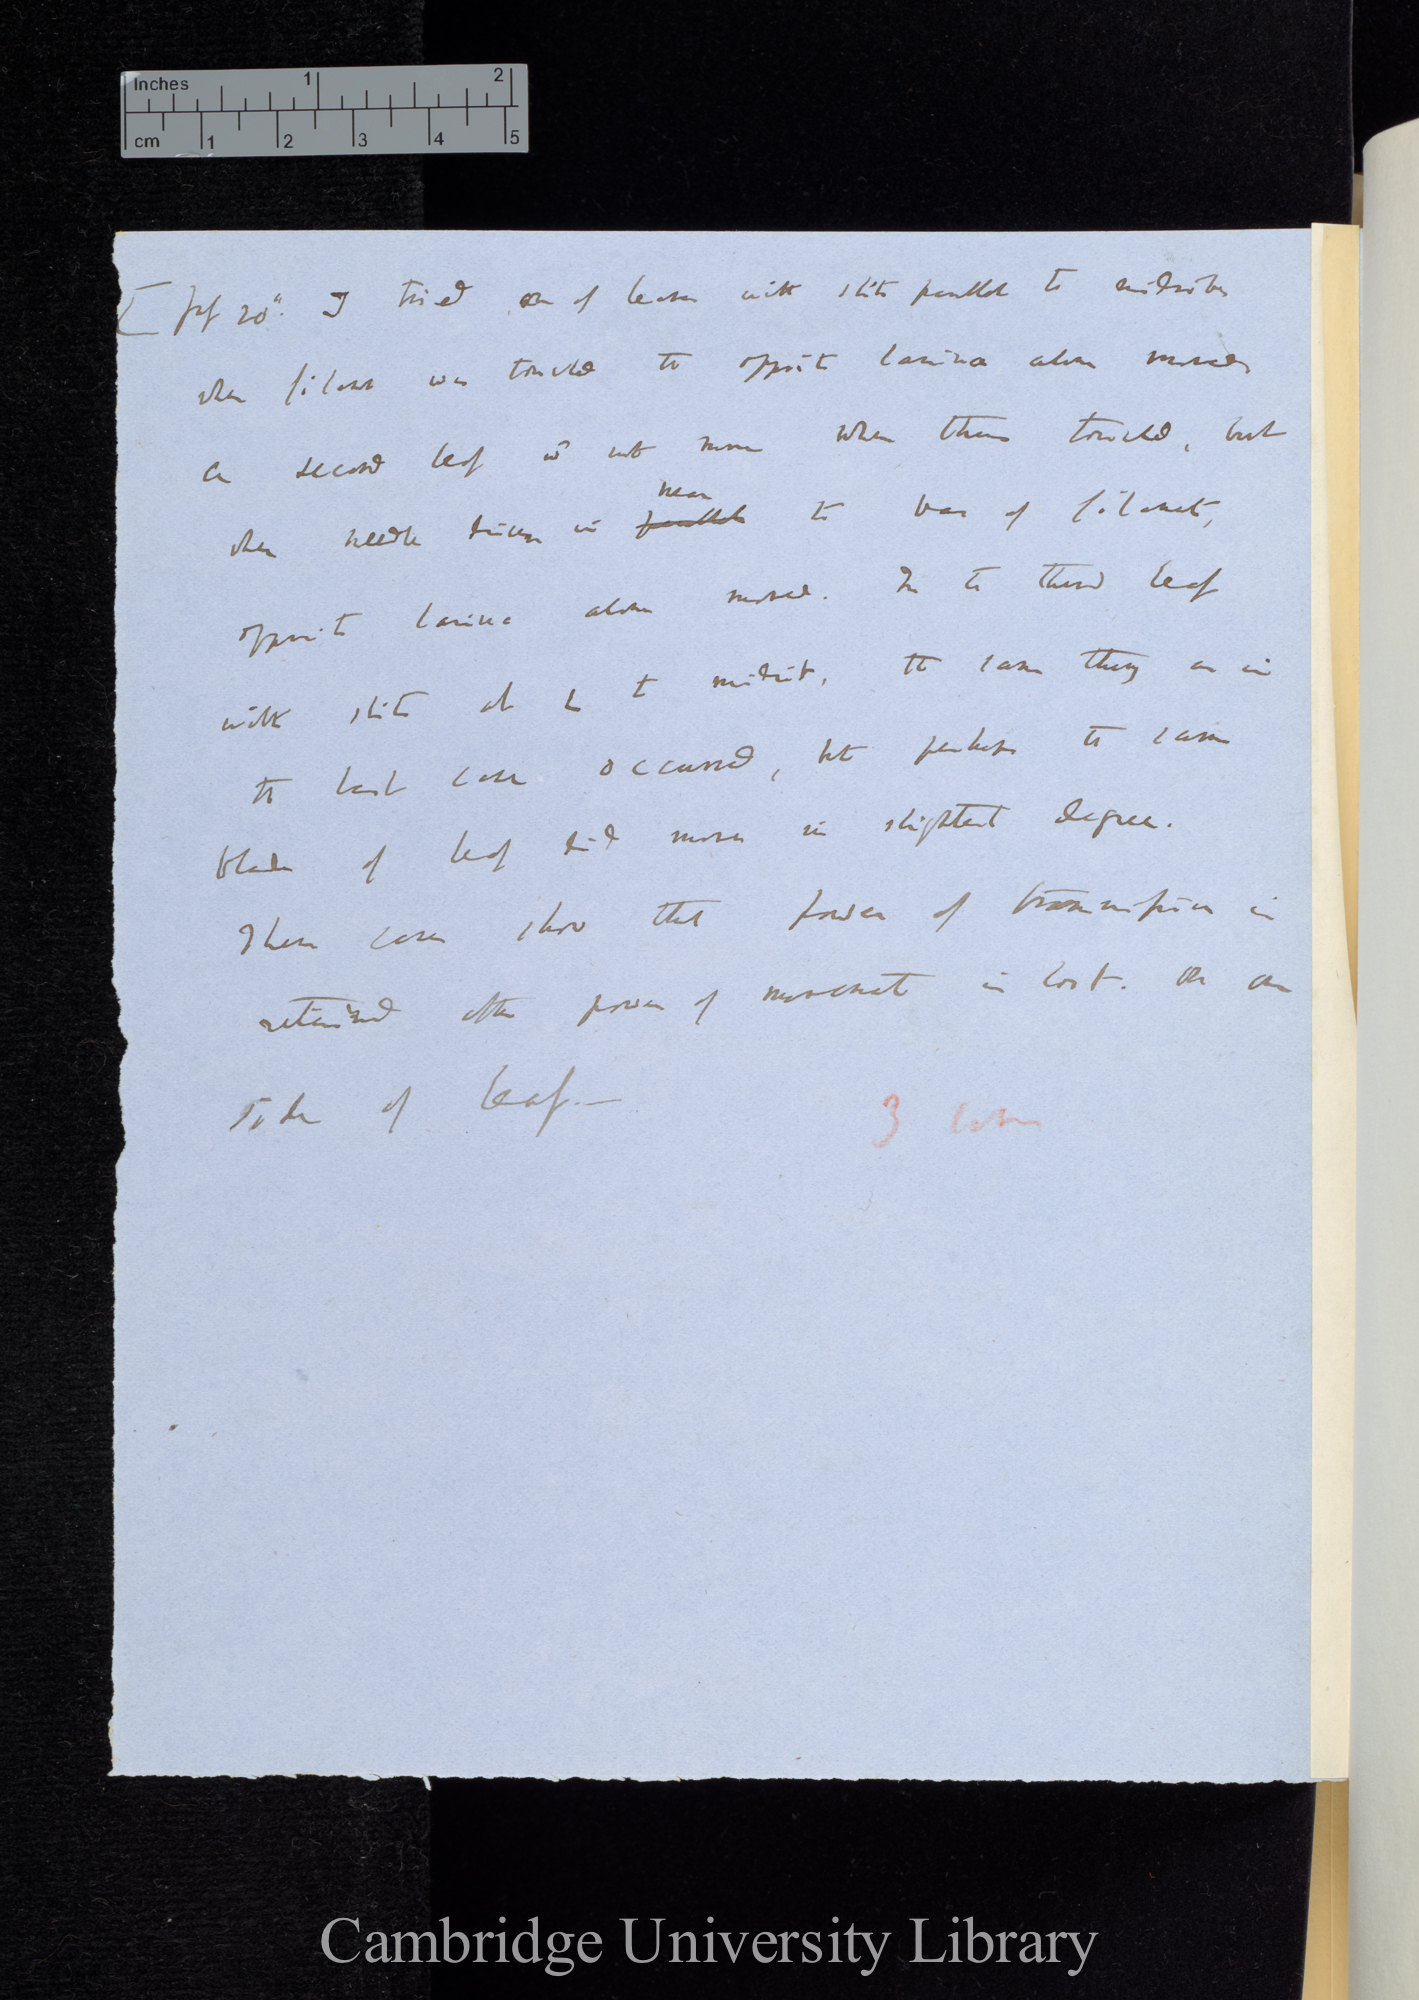 Inches 1 2
cm 1 2 3 4 5
20". I tried one of leaves with slits parallel to midribs
when filament was touched the opposite lamina alone moved
a second leaf wd not move when thus touched, but
near
when needle driven in parallel to base of filament,
opposite lamina alone moved. In the third leaf
with slits at L to midrib, the same thing as in
the last case occurred, but perhaps the same
blade of leaf did move in slightest degree.
These cases show that power of transmission is
retained after power of movement is lost. on one
side of leaf.—
3 cases
Cambridge University Library